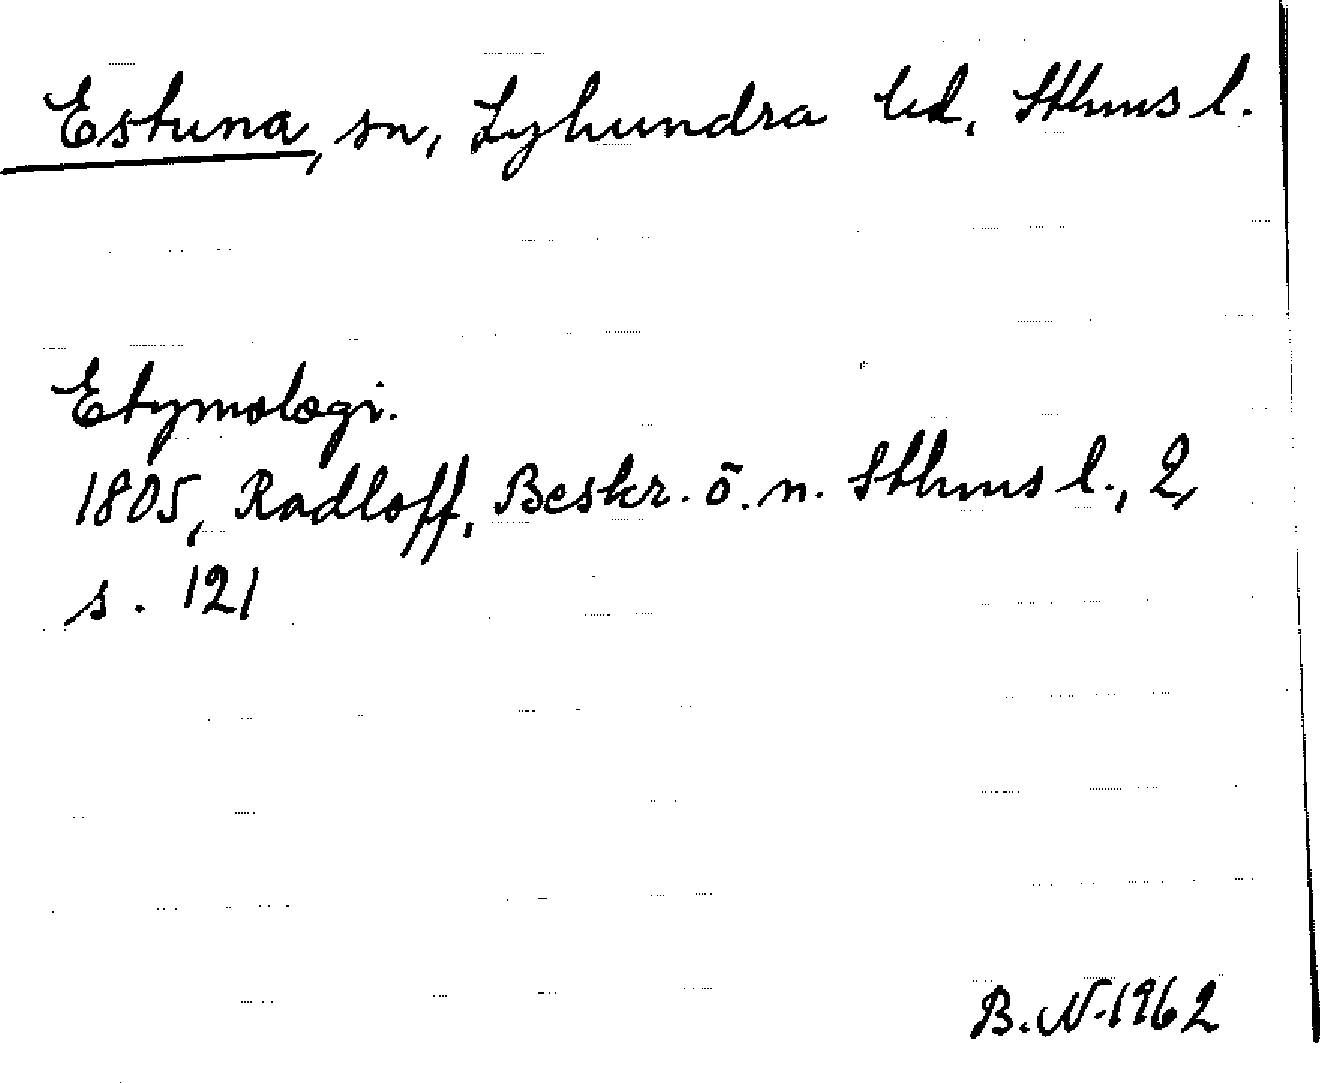 Estuna, sn, Lyhundra hd, Sthms l.
Etymologi.
1805, Radloff, Beskr. ö. n. Sthms l., 2,
s. 121
B.N-1962